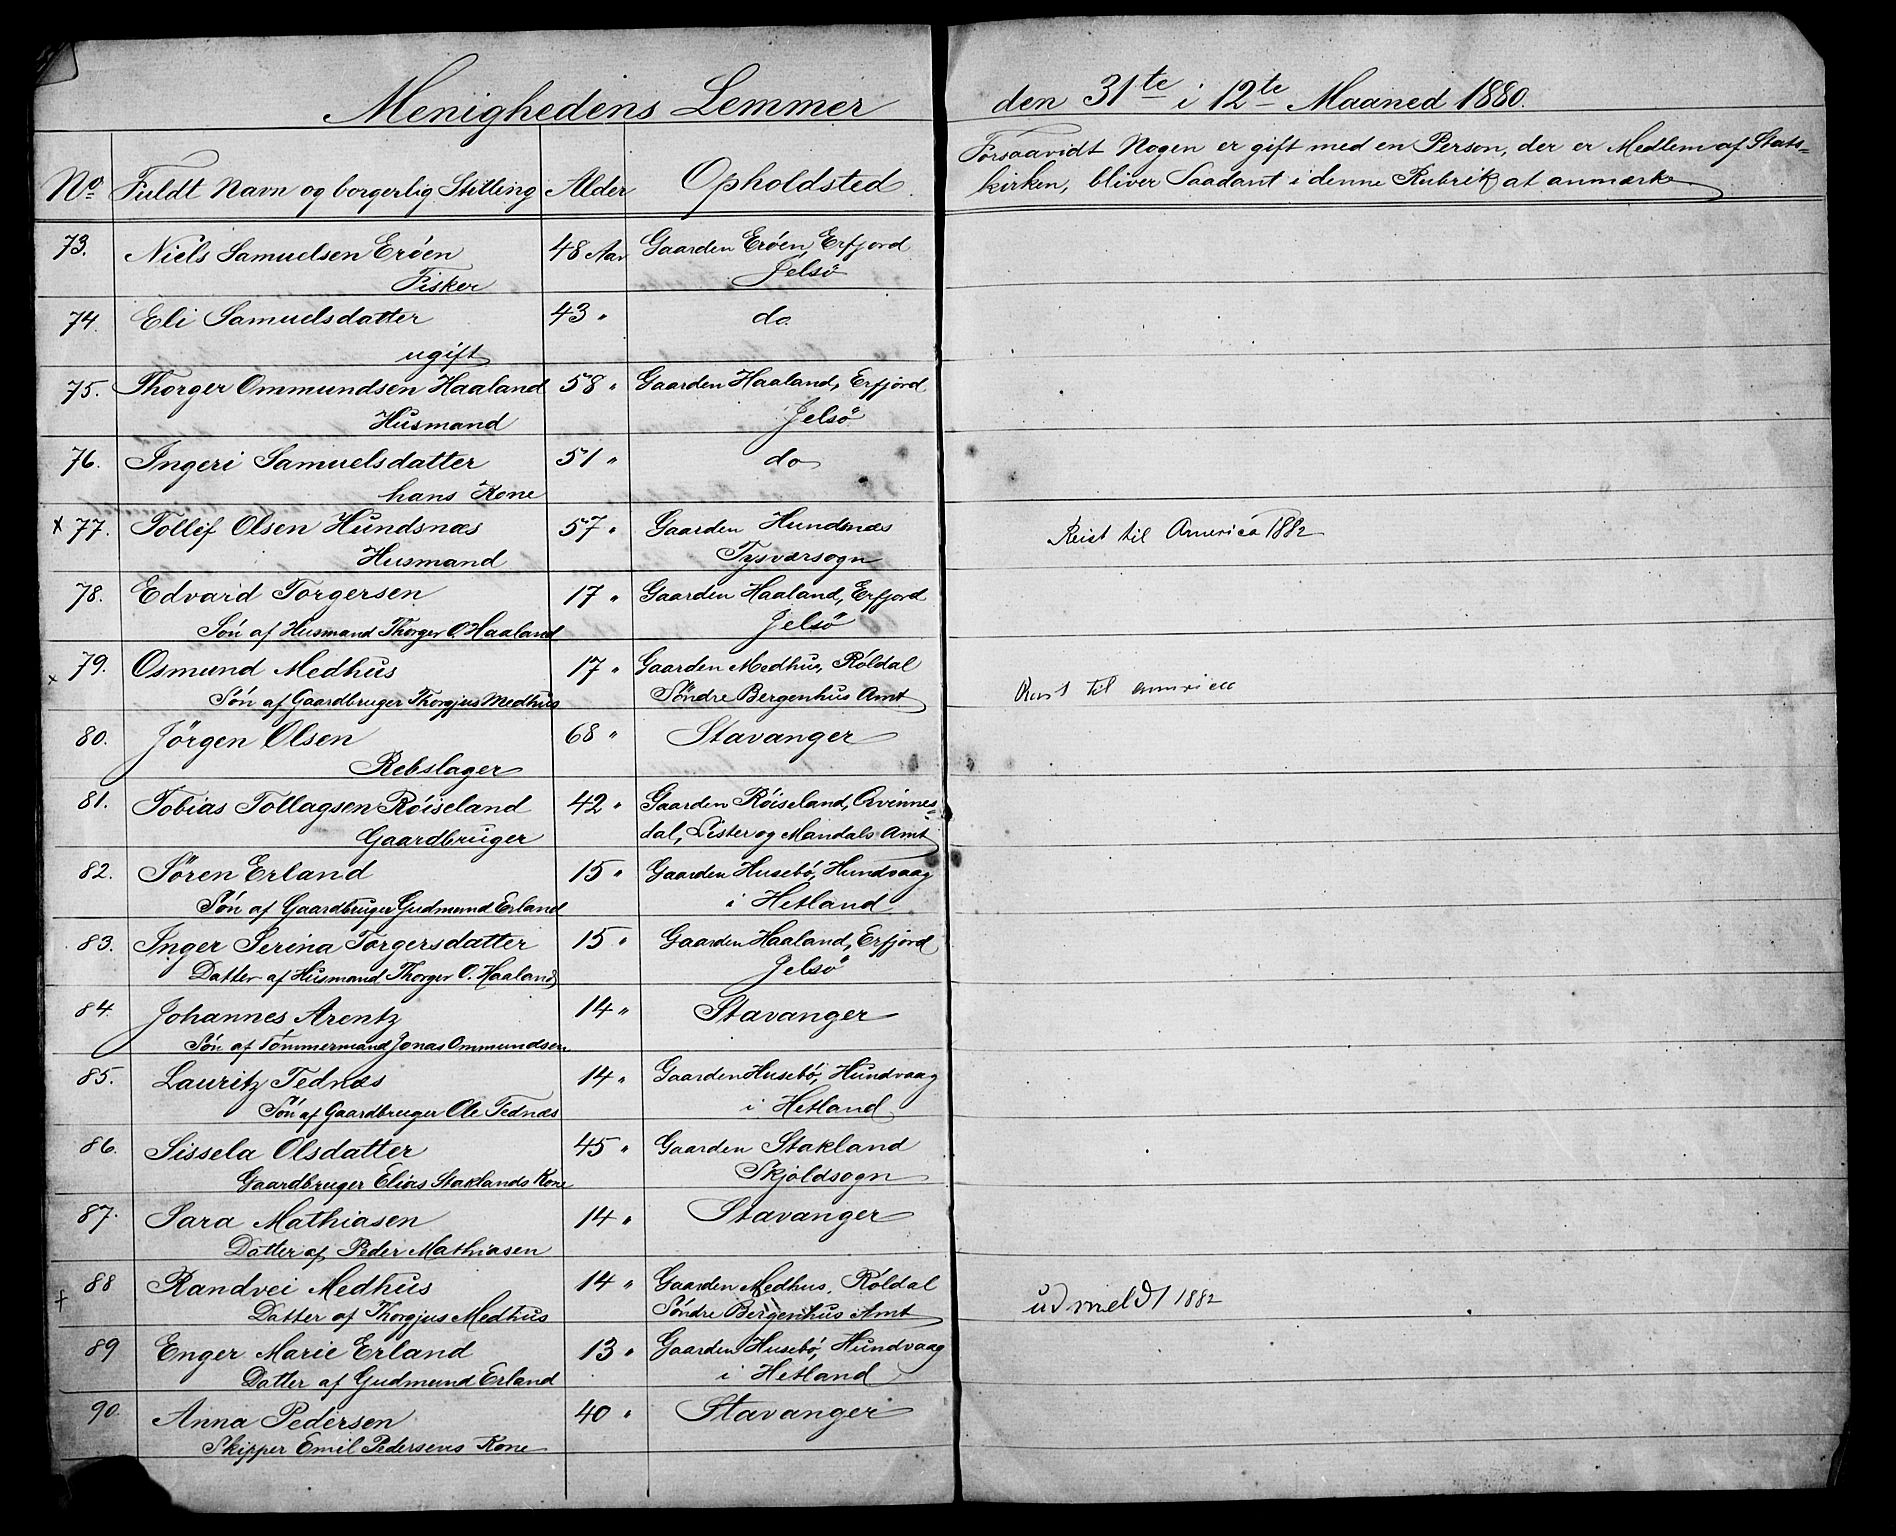 Menighedens Lemmer den 31te i 12te Maaned 1880.
No Fuldt Navn og borgerlig Stilling Alder Opholdsted
Forsaavidt Nogen er gift med en Person, der er Medlem af Stats-
kirken, bliver Saadant i denne Rubrik at anmærke
73. Niels Samuelsen Erøen 48 Aar Gaarden Erøen, Erfjord
Fisker Jelsø
74. Eli Samuelsdatter 43 " do
ugift
75. Thorger Ommundsen Haaland 58 " Gaarden Haaland, Erfjord
Husmand Jelsø
76. Ingeri Samuelsdatter 51 " do
hans Kone
x 77. Tollef Olsen Hundsnæs 57 " Gaarden Hundsnæs Reist til America 1882
Husmand Tysværsogn
78. Edvard Torgersen 17 " Gaarden Haaland, Erfjord
Søn af Husmand Thorger O. Haaland Jelsø
x 79. Osmund Medhus 17 " Gaarden Medhus, Røldal
Søn af Gaardbruger Thorgjus Medhus Søndre Bergenhus Amt Reist til america
80. Jörgen Olsen 68 " Stavanger
Rebslager
81. Tobias Tollagsen Røiseland 42 " Gaarden Røiseland, Qvinnes-
Gaardbruger dal, Lister og Mandals Amt
82. Søren Erland 15 " Gaarden Husebø, Hundvaag
Søn af Gaardbruger Gudmund Erland i Hetland
83. Inger Serina Torgersdatter 15 " Gaarden Haaland, Erfjord
Datter af Husmand Thorger O. Haaland Jelsø
84. Johannes Arentz 14 " Stavanger
Søn af Tømmermand Jonas Ommundsen
85. Lauritz Tednæs 14 " Gaarden Husebø, Hundvaag
Søn af Gaardbruger Ole Tednæs i Hetland
86. Sissela Olsdatter 45 " Gaarden Stakland
Gaardbruger Elias Staklands Kone Skjoldsogn
87. Sara Mathiasen 14 " Stavanger
Datter af Peder Mathiasen
88 Randvei Medhus 14 " Gaarden Medhus, Røldal
† Datter af Thorgjus Medhus Søndre Bergenhus Amt udmeldt 1882
89 Enger Marie Erland 13 " Gaarden Husebø, Hundvaag
Datter af Gudmund Erland i Hetland
90. Anna Pedersen 40 " Stavanger
Skipper Emil Pedersens Kone